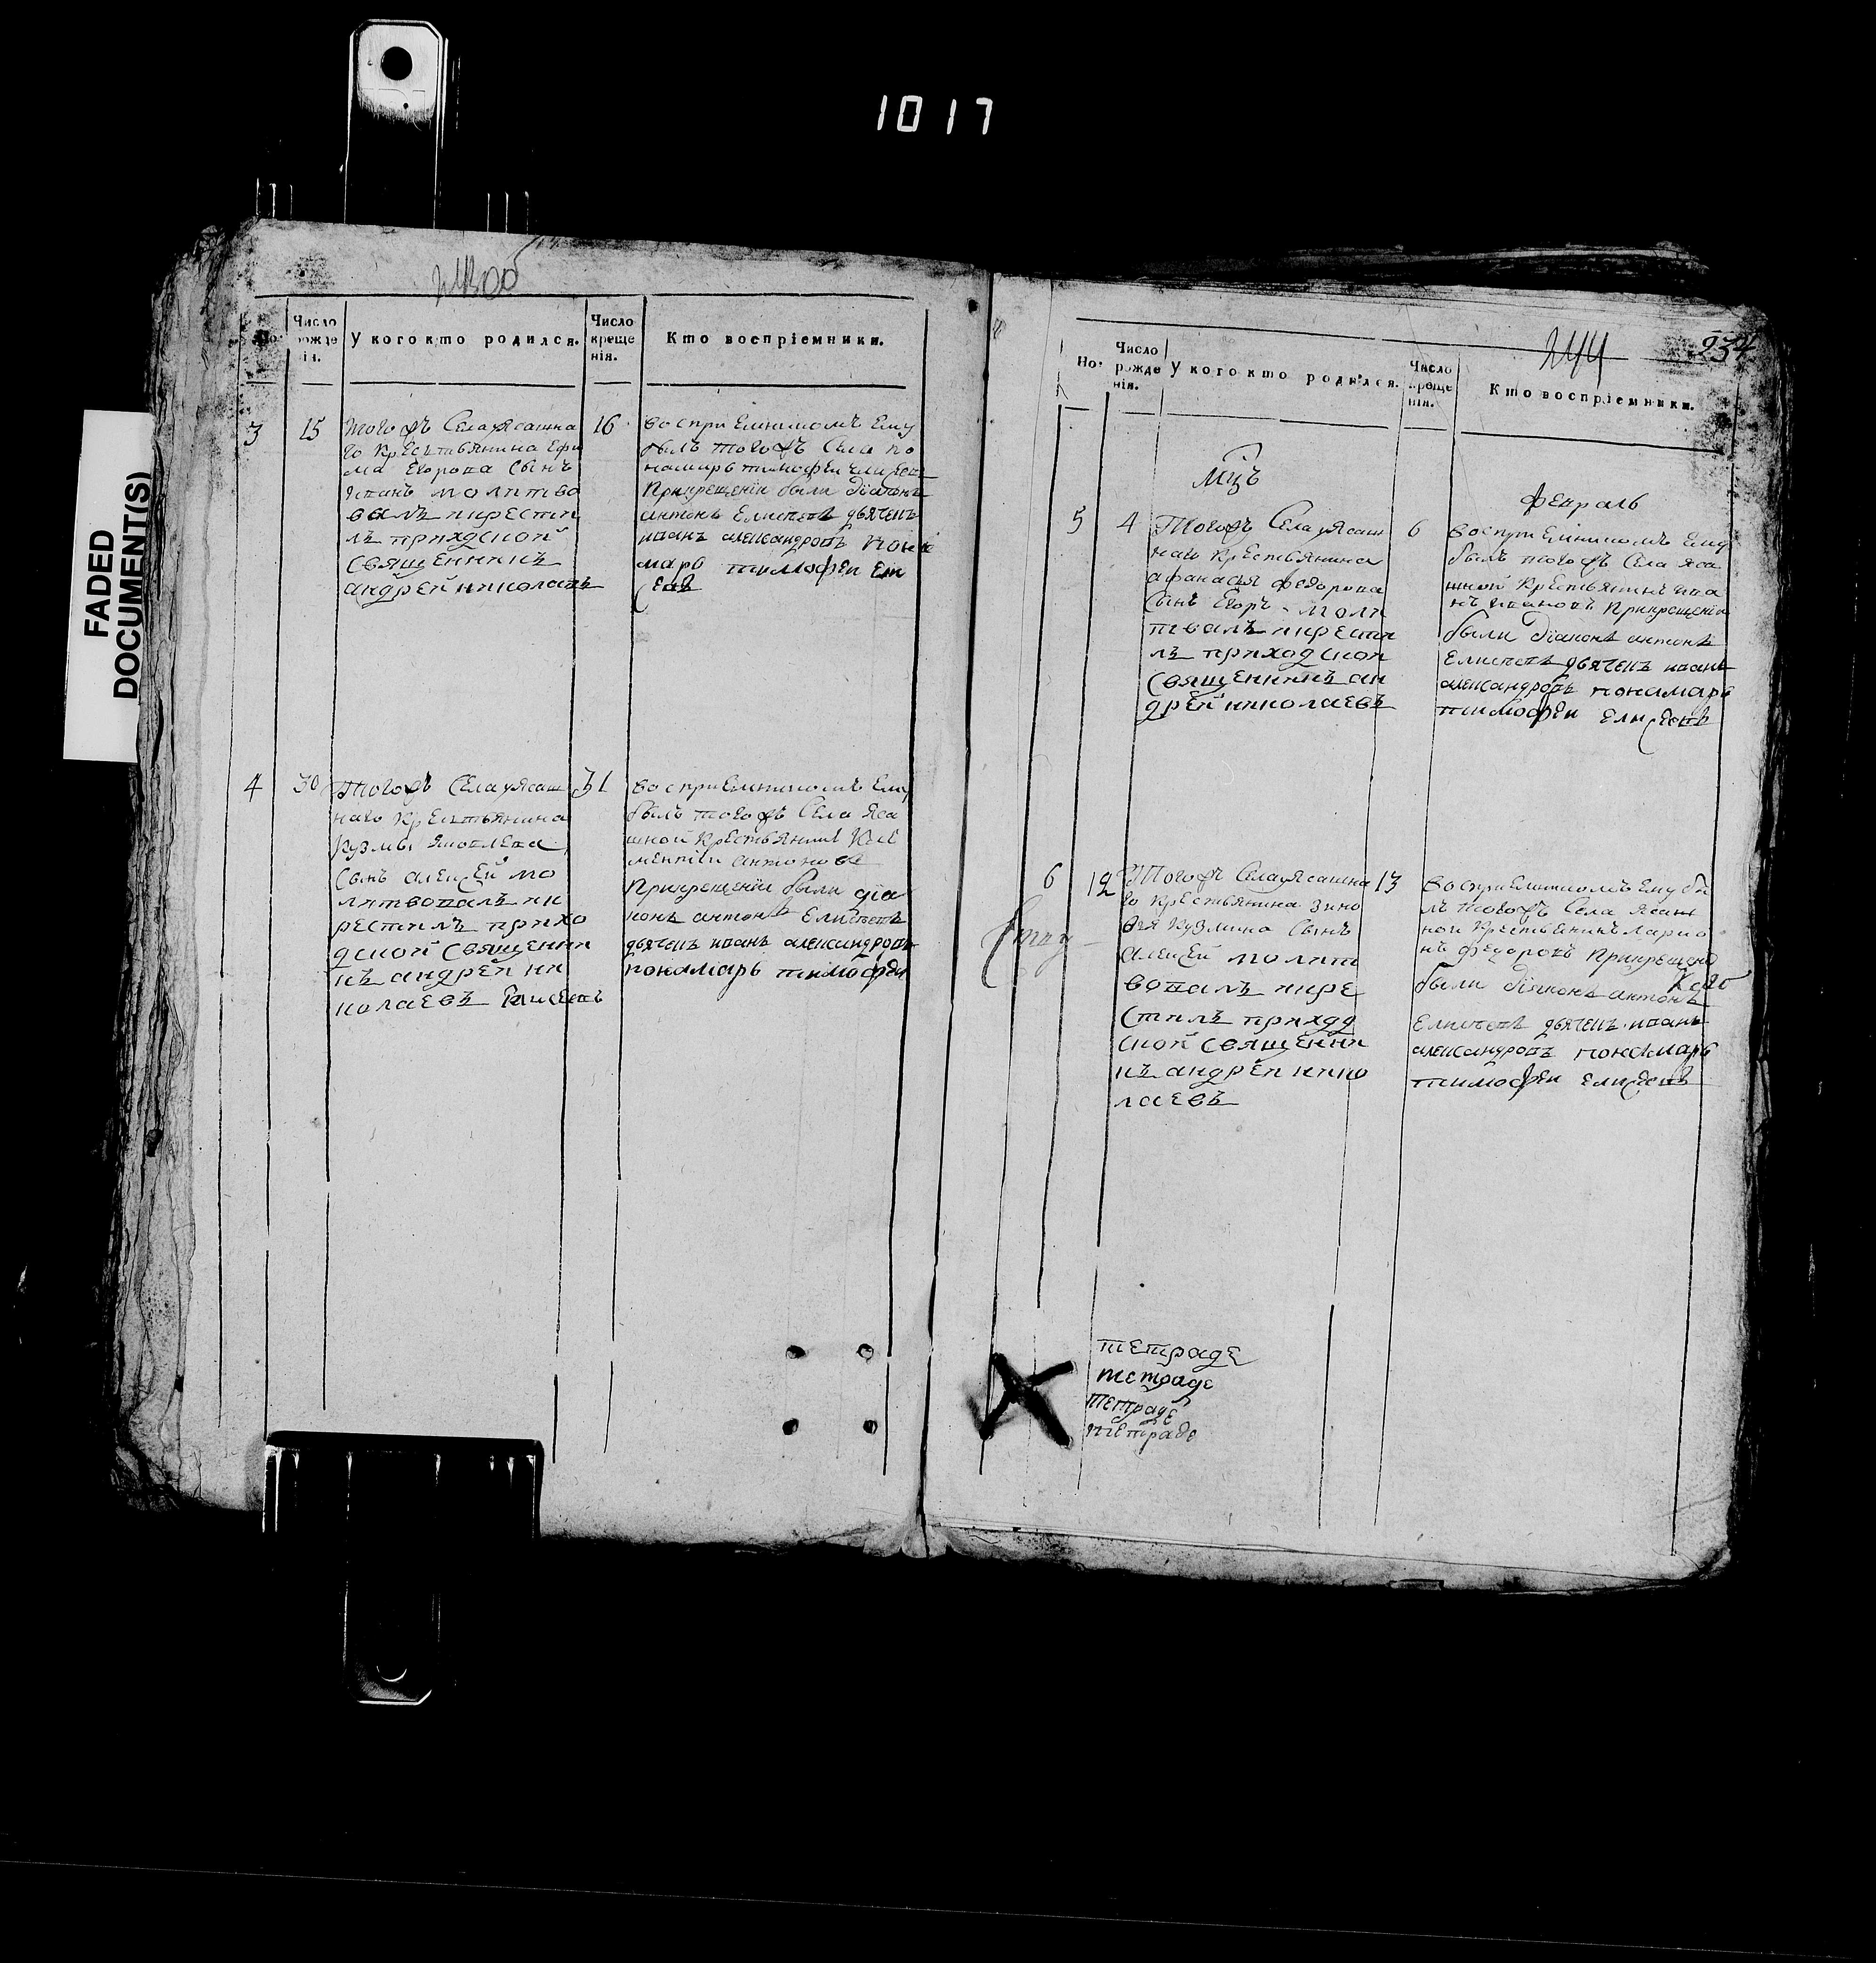 1017
FADED
DOCUMENT(S)
Число рожденія.
У кого кто родился.
Число крещенія.
Кто воспріемники.
3
15
тогожъ села уясашна
го крестьянина Ефи
ма Егорова сынъ
иванъ молитво
валъ икрести
лъ приходской
священникъ
андрей николаевъ
16
воспріемникомъ ему
былъ тогожъ села по
намарь тимофеи елисеевъ
прикрещеніи были діаконъ
антонъ Елисеевъ дьячекъ
иванъ александровъ поно
марь тимофеи ели
сеевъ
4
30
тогожъ села уясаш
наго крестьянина
кузмы яковлева
сынъ алексей мо
литвовалъ ик
рестилъ прихо
дской священни
къ андрей ни
колаевъ
31
воспріемникомъ ему
былъ тогожъ села яса
шной крестьянинъ
антонова
прикрещеніи были діа
конъ антонъ Елисеевъ
дьячекъ иванъ александровъ
понамарь тимофеи
244
234
Но.
Число рожденія.
У кого кто родился.
Число крещенія.
Кто воспріемники.
Мцъ
февраль
5
4
Тогожъ села уясаш
наго крестьянина
афанасья федорова
сынъ Егоръ моли
твовалъ икрести
лъ приходской
священникъ ан
дрей николаевъ
6
воспріемникомъ ему
былъ тогожъ села яса
шной крестьянинъ ива
нъ ивановъ прикрещеніи
были діаконъ антонъ
Елисеевъ дьячекъ иванъ
александровъ понамарь
тимофеи елисеевъ
6
12
Тогожъ села уясашна
го крестьянина зино
вея кузмина сынъ
алексей молит
вовалъ икре
стилъ приход
ской священни
къ андреи нико
лаевъ
13
воспріемникомъ ему бы
лъ тогожъ села ясаш
ной крестьянинъ ларио
нъ федоровъ прикрещеніи
были діаконъ антонъ
Елисеевъ дьячекъ иванъ
александровъ понамарь
тимофеи елисеевъ
тетраде
тетраде
тетраде
тетраде